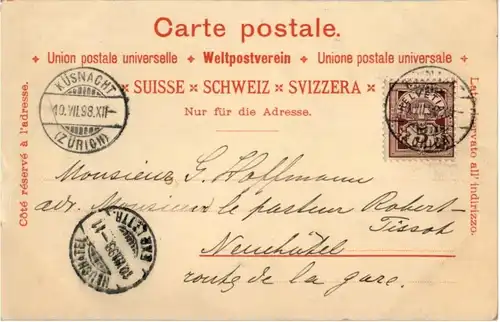 Carte postale.
+ Union postale universelle + Weltpostverein + Unione postale universale +
× SUISSE × SCHWEIZ × SVIZZERA ×
Nur für die Adresse.
Côté réservé à l'adresse.
Lato riservato all' indirizzo.
KÜSNACHT
10.VII.98.XII
(ZÜRICH)
Monsieur G. Hoffmann
adr. Monsieur le pasteur Robert-
Tissot
Neuchâtel
route de la gare.
NEUCHATEL
EXP. LETTR.